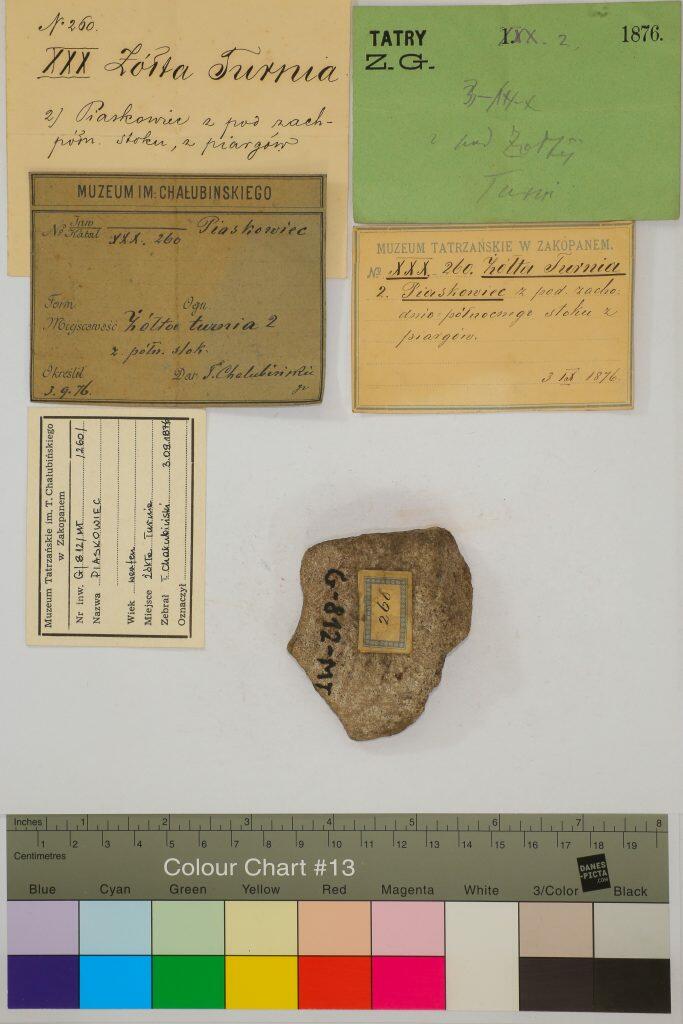 № 260.
XXX Żółta Turnia
2) Piaskowiec z pod zach-
półn. stoku, z piargów
TATRY XXX. 2, 1876.
Z. G.
z pod Żółtej
Turni
MUZEUM IM: CHAŁUBINSKIEGO
№ Inw Katal XXX. 260 Piaskowiec
Form Ogn
Miejscowość Żółta turnia 2
z półn. stok.
Określił Dar T. Chałubińskiego
3.9.76.
MUZEUM TATRZAŃSKIE W ZAKOPANEM.
№ XXX 260. Żółta Turnia
2. Piaskowiec z pod zacho-
dnio-północnego stoku z
piargów.
3 IX 1876.
Muzeum Tatrzańskie im. T. Chałubińskiego
w Zakopanem
Nr inw. G/812/MT /260/
Nazwa PIASKOWIEC
Wiek
Miejsce Żółta Turnia
Zebrał T. Chałubiński 3.09.1876
Oznaczył
G-812-MT
260
Inches 1 2 3 4 5 6 7 8
1 2 3 4 5 6 7 8 9 10 11 12 13 14 15 16 17 18 19
Centimetres
Colour Chart #13
DANES-PICTA.COM
Blue Cyan Green Yellow Red Magenta White 3/Color Black